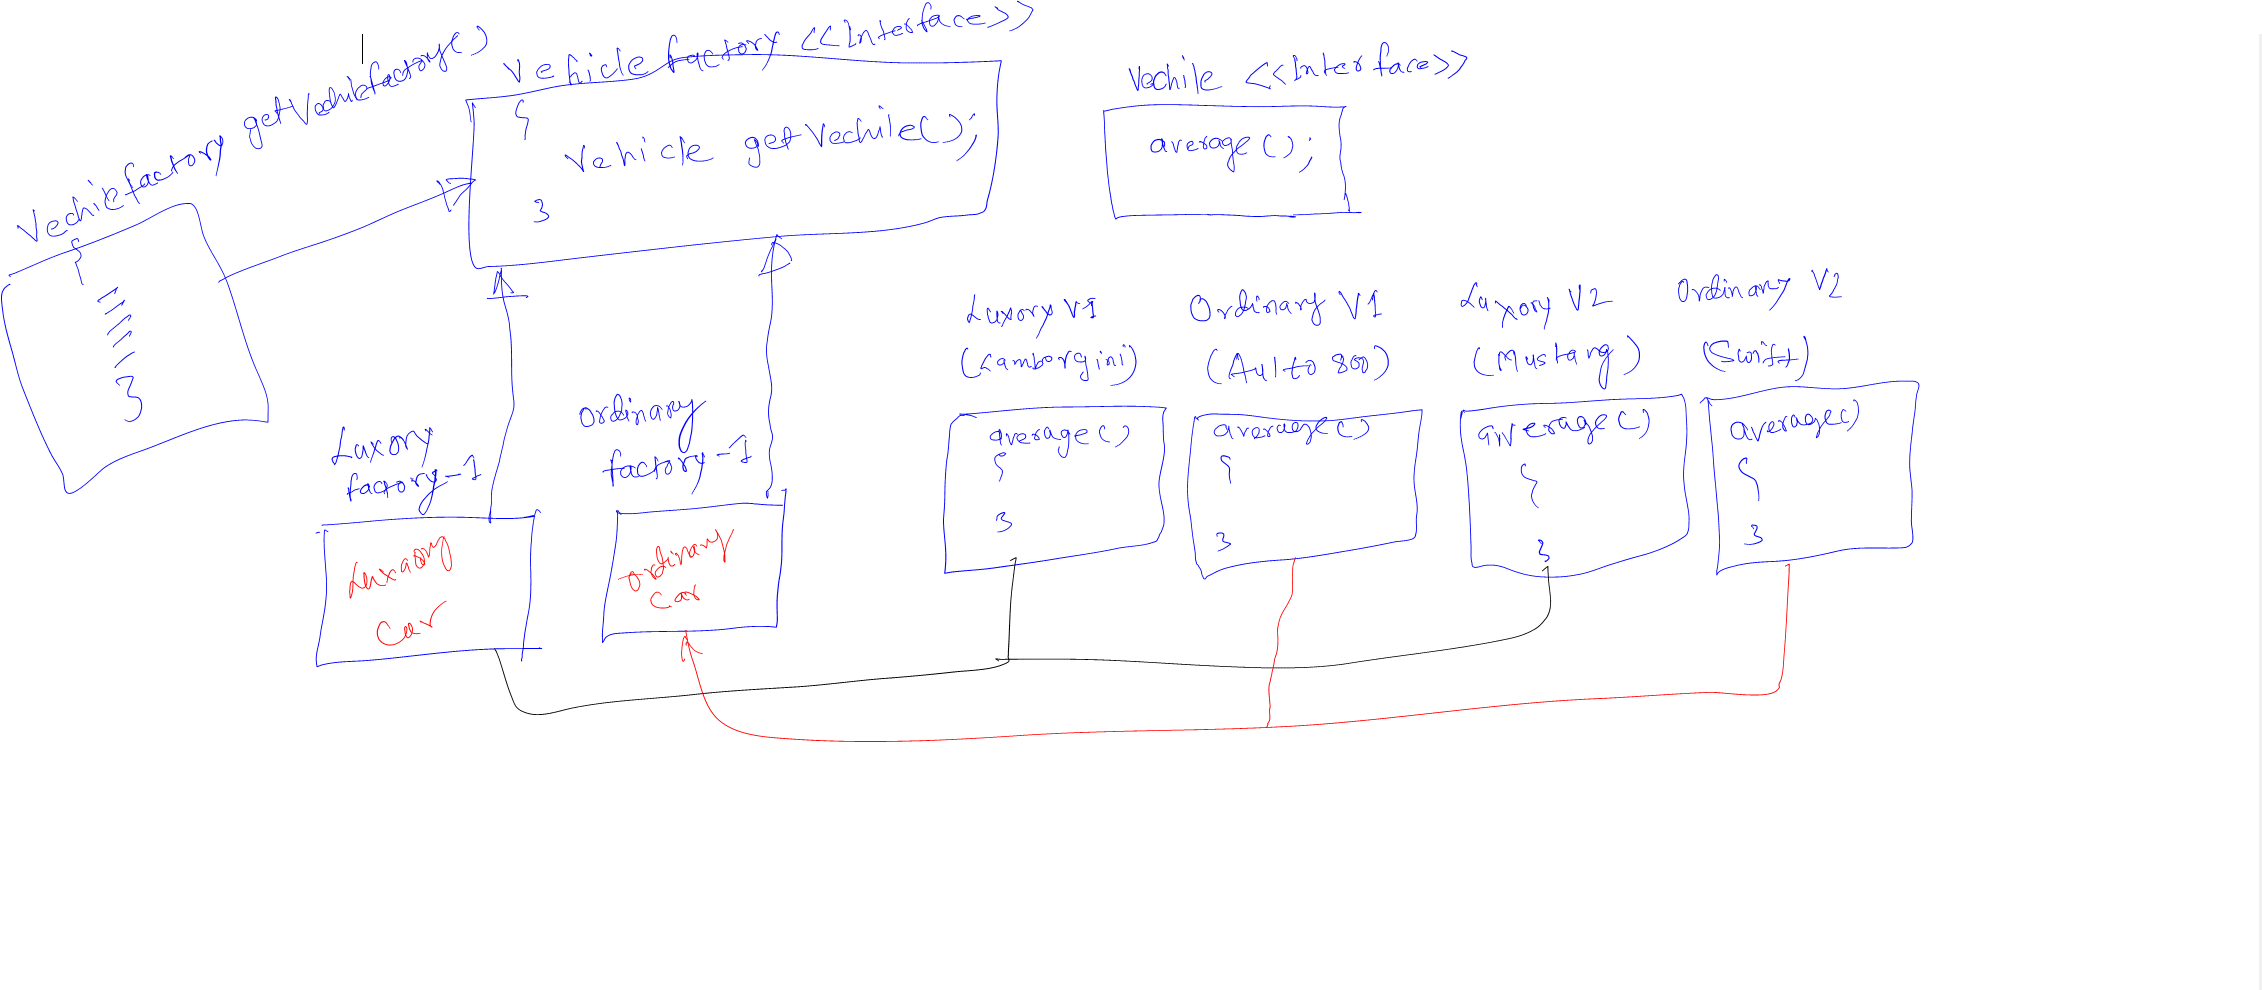 Vechiefactory getVechiefactory()
{
}
Vehicle factory <<Interface>>
{
Vehicle getVechile();
}
Vechile <<Interface>>
average();
Luxory
factory-1
Luxaory
Car
Ordinary
factory-1
Ordinary
Car
Luxory V1
(Lamborgini)
average()
{
}
Ordinary V1
(Aulto 800)
average()
{
}
Luxory V2
(Mustang)
average()
{
}
Ordinary V2
(Swift)
average()
{
}